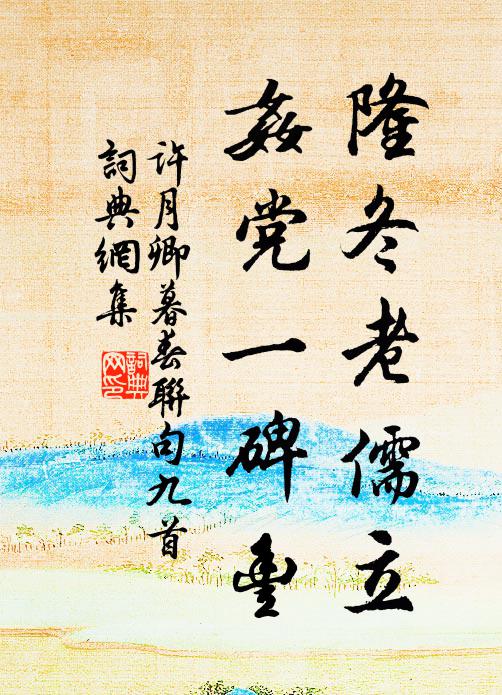 隆冬老儒立
姦党一碑豊
許月卿暮春聯句九首
詞典網集
詞典网印